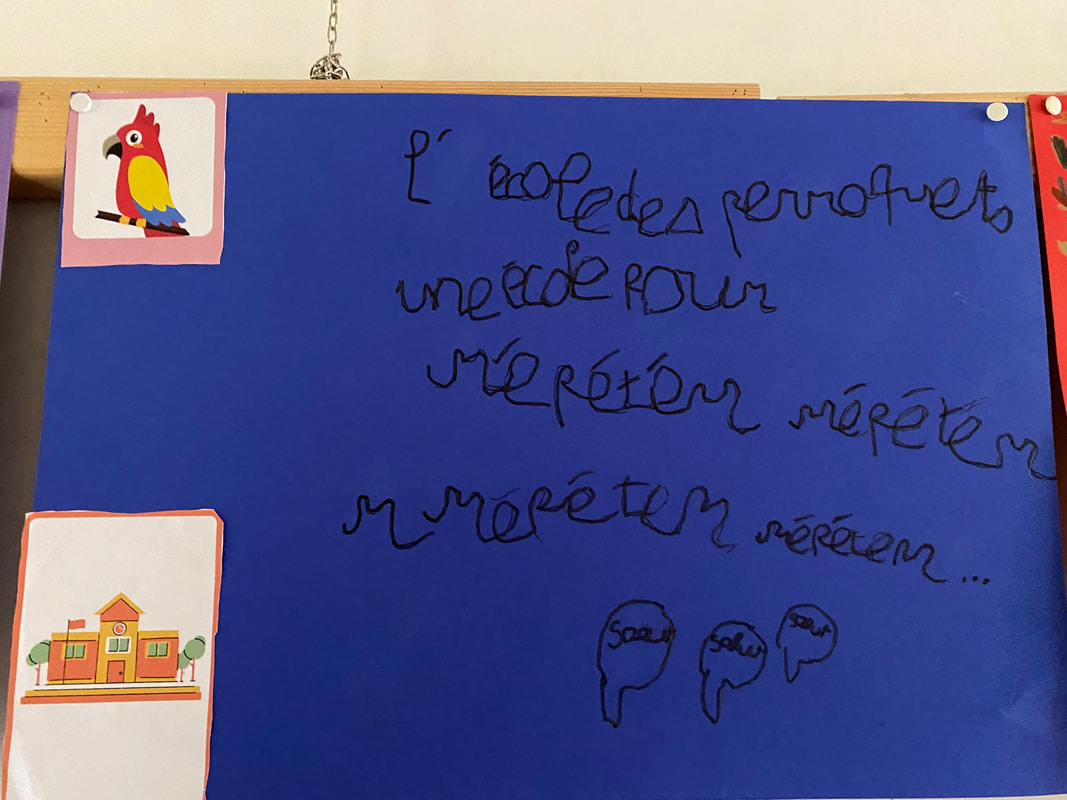 l' école des perroquets
une école pour
répétér répétér
r répéter répéter...
salu salu salu